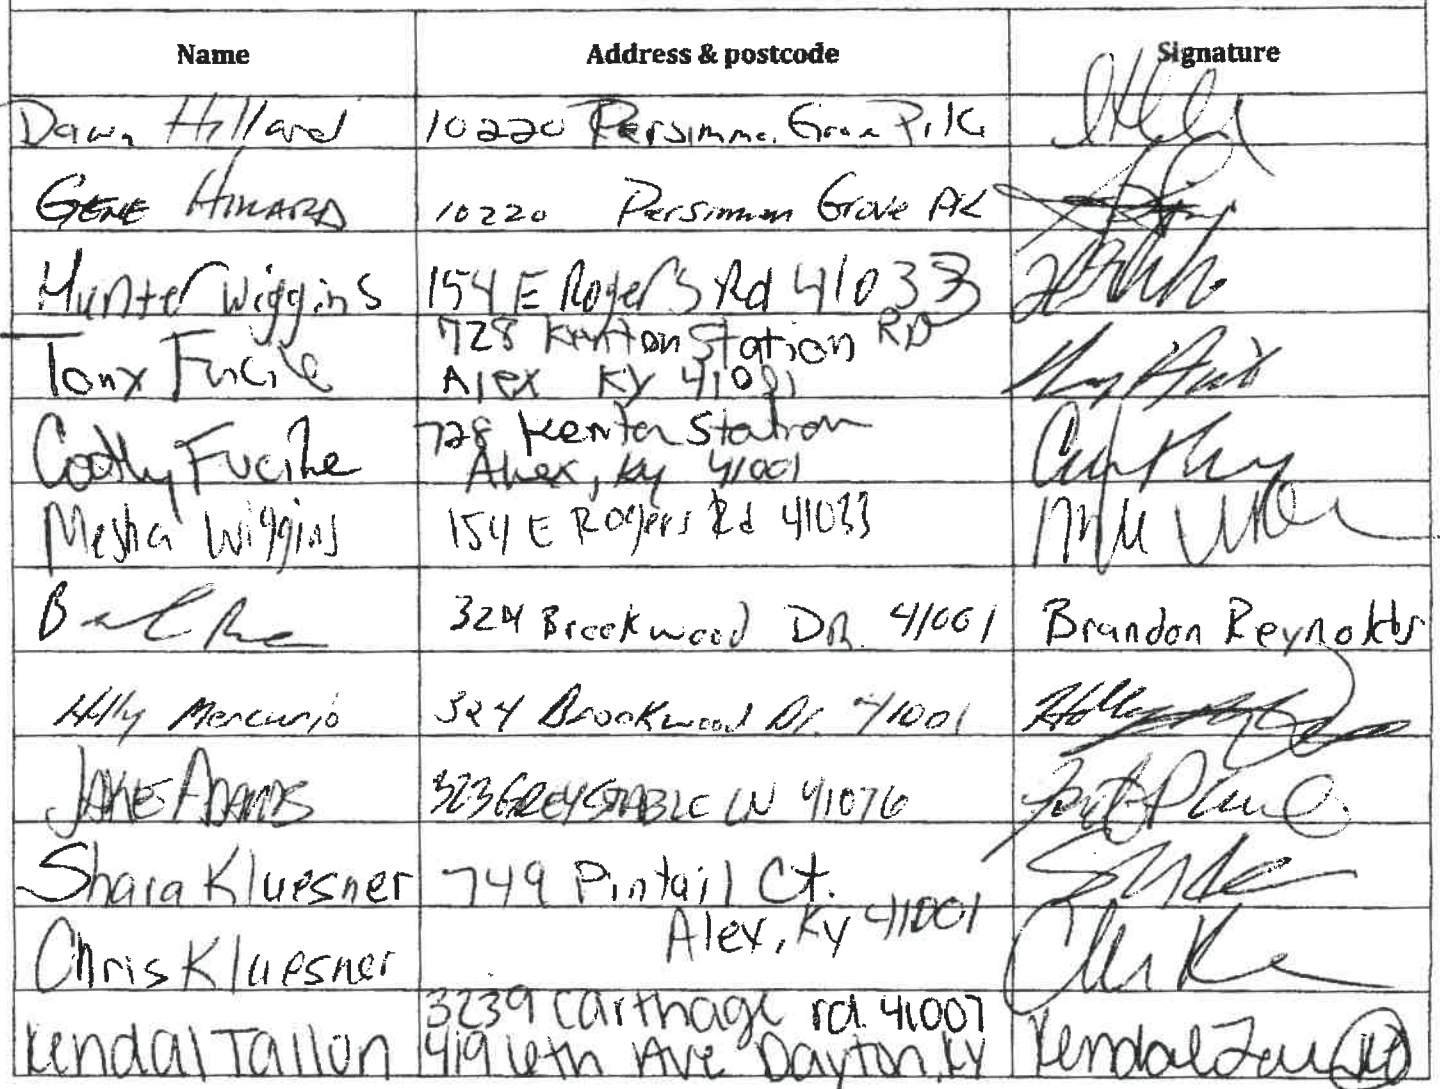 Name Address & postcode Signature
Dawn Hillard 10220 Persimmon Grove Pike
GENE HILLARD 10220 Persimmon Grove PK
Hunter Wiggins 154 E Rogers Rd 41033
728 Kenton Station RD
Tony Fucile Alex KY 41001
728 Kenton Station
Cathy Fucile Alex, Ky 41001
Mesha Wiggins 154 E Rogers Rd 41033
324 Brookwood DR. 41001 Brandon Reynolds
Holly Mercurio 324 Brookwood Dr. 41001 Holly
JAKE ADAMS 323 GREYSTABLE LN 41076
Shara Kluesner 749 Pintail Ct.
Alex, Ky 41001
Chris Kluesner
3239 Carthage rd. 41007
Kendal Tallon 419 6th Ave Dayton, KY Kendal